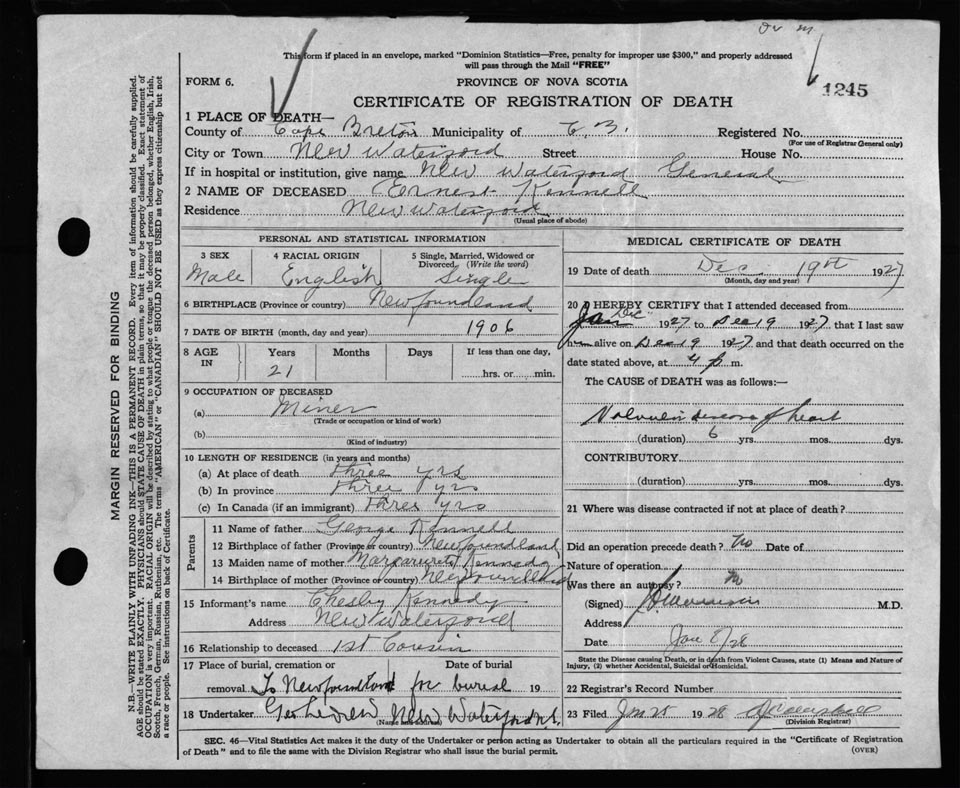 Dr m
This form if placed in an envelope, marked "Dominion Statistics—Free, penalty for improper use $300," and properly addressed
will pass through the Mail "FREE"
FORM 6.
PROVINCE OF NOVA SCOTIA
1245
CERTIFICATE OF REGISTRATION OF DEATH
1 PLACE OF DEATH—
County of Cape Breton Municipality of C. B. Registered No.
(For use of Registrar General only)
City or Town New Waterford Street House No.
If in hospital or institution, give name New Waterford General
2 NAME OF DECEASED Ernest Kennell
Residence New Waterford
(Usual place of abode)
PERSONAL AND STATISTICAL INFORMATION
3 SEX 4 RACIAL ORIGIN 5 Single, Married, Widowed or Divorced. (Write the word)
Male English Single
6 BIRTHPLACE (Province or country) Newfoundland
7 DATE OF BIRTH (month, day and year) 1906
8 AGE IN Years Months Days If less than one day,
21 hrs. or min.
9 OCCUPATION OF DECEASED
(a) Miner
(Trade or occupation or kind of work)
(b)
(Kind of industry)
10 LENGTH OF RESIDENCE (in years and months)
(a) At place of death three yrs
(b) In province three yrs
(c) In Canada (if an immigrant) three yrs
Parents
11 Name of father George Kennell
12 Birthplace of father (Province or country) Newfoundland
13 Maiden name of mother Margaruet Kennedy
14 Birthplace of mother (Province or country) Newfoundland
15 Informant's name Chesley Kennedy
Address New Waterford
16 Relationship to deceased 1st Cousin
17 Place of burial, cremation or Date of burial
removal To Newfoundland for burial 19
18 Undertaker New Waterford N.S.
MEDICAL CERTIFICATE OF DEATH
19 Date of death Dec 19th 1927
(Month, day and year)
20 I HEREBY CERTIFY that I attended deceased from
Jan Dec 1927 to Dec 19 1927, that I last saw
him alive on Dec 19 1927 and that death occurred on the
date stated above, at 4 p m.
The CAUSE of DEATH was as follows:
Valvular disease of heart
(duration) 6 yrs. mos. dys.
CONTRIBUTORY
(duration) yrs. mos. dys.
21 Where was disease contracted if not at place of death?
Did an operation precede death? no Date of
Nature of operation
Was there an autopsy? no
(Signed) M.D.
Address
Date Jan 8/28
State the Disease causing Death, or in death from Violent Causes, state (1) Means and Nature of
Injury, (2) whether Accidental, Suicidal or Homicidal.
22 Registrar's Record Number
23 Filed Jan 25 1928
(Division Registrar)
SEC. 46—Vital Statistics Act makes it the duty of the Undertaker or person acting as Undertaker to obtain all the particulars required in the "Certificate of Registration
of Death" and to file the same with the Division Registrar who shall issue the burial permit.
(OVER)
MARGIN RESERVED FOR BINDING
N.B.—WRITE PLAINLY, WITH UNFADING INK—THIS IS A PERMANENT RECORD. Every item of information should be carefully supplied.
AGE should be stated EXACTLY. PHYSICIANS should STATE CAUSE OF DEATH in plain terms, so that it may be properly classified. Exact statement of
OCCUPATION is very important. RACIAL ORIGIN will be described by stating to what people or tongue the deceased person belonged, whether English, Irish,
Scotch, French, German, Russian, Ruthenian, etc. The terms "AMERICAN" or "CANADIAN" SHOULD NOT BE USED as they express citizenship but not
a race or people. See instructions on back of Certificate.